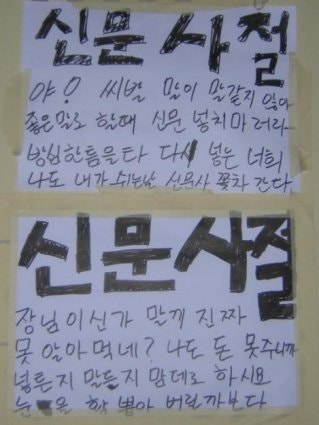 신문사절
야! 씨발 말이 말같지 않아
좋은말로 할때 신문 넣치마러라
방심한틈을타 다시 넣는 너희
나도 내가 쉬는날 신문사 쫓차 간다.
신문사절
장님이신가 말끼 진짜
못 알아먹네? 나도 돈 못주니까
넣른지 말든지 맘데로 하시요
눈 을 확 뽑아 버릴까보다